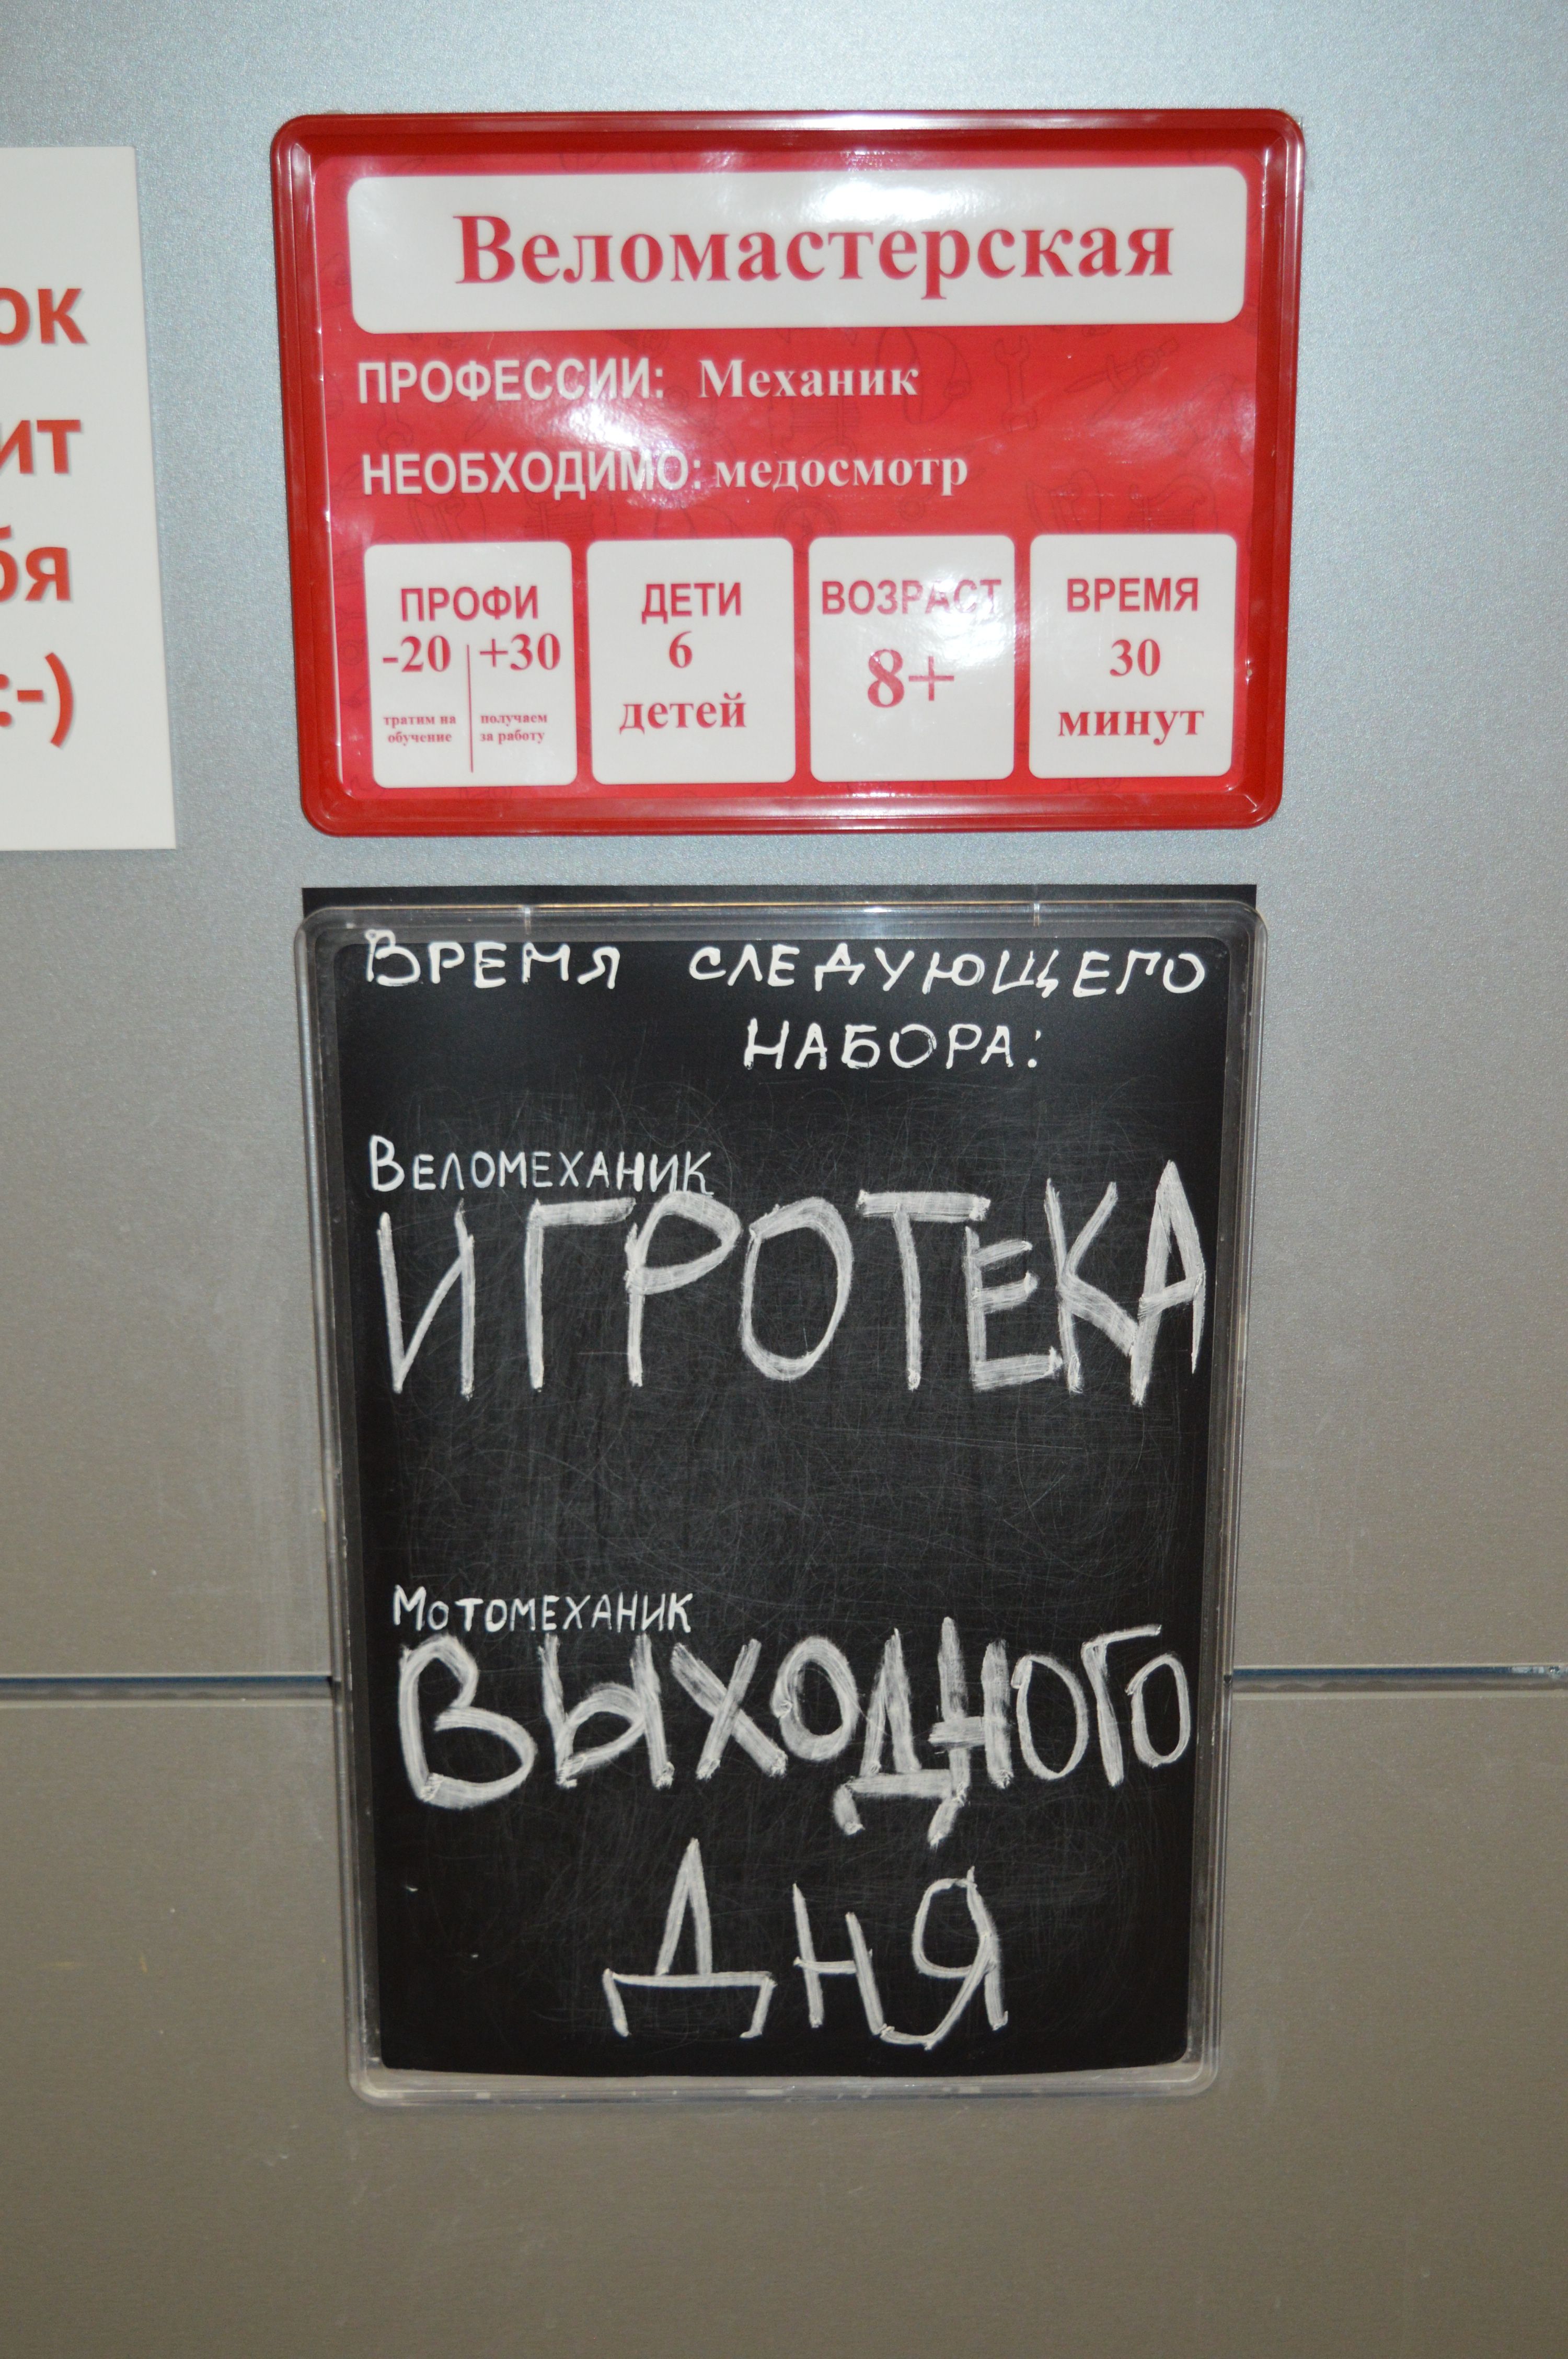 ок
ит
бя
:-)
Веломастерская
ПРОФЕССИИ: Механик
НЕОБХОДИМО: медосмотр
ПРОФИ
-20 +30
тратим на обучение
получаем за работу
ДЕТИ
6
детей
ВОЗРАСТ
8+
ВРЕМЯ
30
минут
ВРЕМЯ СЛЕДУЮЩЕГО
НАБОРА:
ВЕЛОМЕХАНИК
ИГРОТЕКА
МОТОМЕХАНИК
ВЫХОДНОГО
ДНЯ